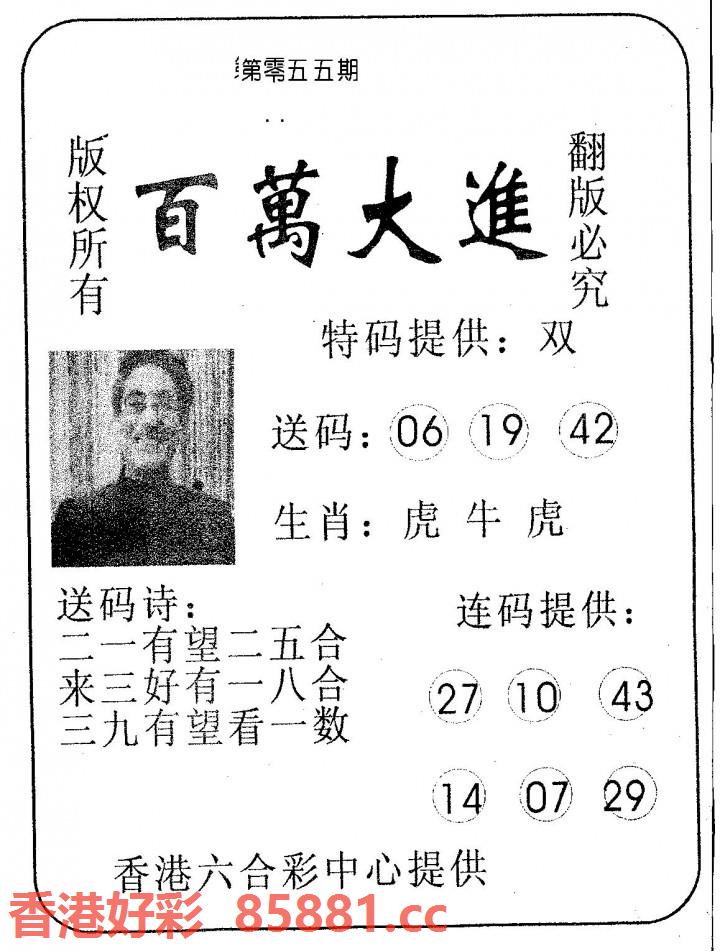 第零五五期
版权所有
百萬大進
翻版必究
特码提供：双
送码：06 19 42
生肖：虎 牛 虎
送码诗：
二一有望二五合
来三好有一八合
三九有望看一数
连码提供：
27 10 43
14 07 29
香港六合彩中心提供
香港好彩 85881.cc